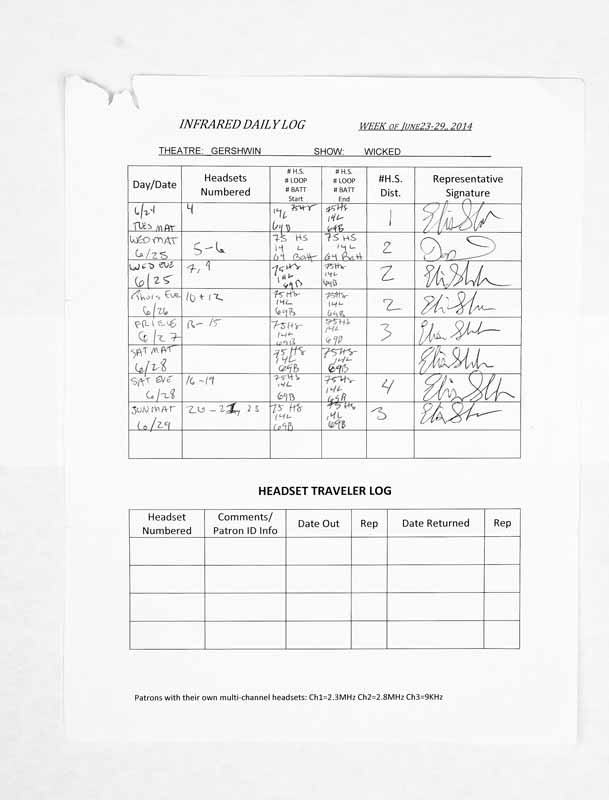 INFRARED DAILY LOG WEEK OF JUNE23-29, 2014
THEATRE: GERSHWIN SHOW: WICKED
Day/Date Headsets Numbered # H.S. # LOOP # BATT Start # H.S. # LOOP # BATT End #H.S. Dist. Representative Signature
6/24 TUES MAT 4 75HS 14L 69B 75HS 14L 69B 1
WED MAT 6/25 5-6 75 HS 14 L 64 Batt 75 HS 14L 64 Batt 2
WED EVE 6/25 7, 9 75HS 14L 69B 75HS 14L 69B 2
Thurs EVE 6/26 10+12 75HS 14L 69B 75HS 14L 69B 2
FRI EVE 6/27 13-15 75HS 14L 69B 75HS 14L 69B 3
SAT MAT 6/28 75HS 14L 69B 75HS 14L 69B
SAT EVE 6/28 16-19 75HS 14L 69B 75HS 14L 69B 4
SUN MAT 6/29 20-21, 23 75 HS 14L 69B 75HS 14L 69B 3
HEADSET TRAVELER LOG
Headset Numbered Comments/ Patron ID Info Date Out Rep Date Returned Rep
Patrons with their own multi-channel headsets: Ch1=2.3MHz Ch2=2.8MHz Ch3=9KHz